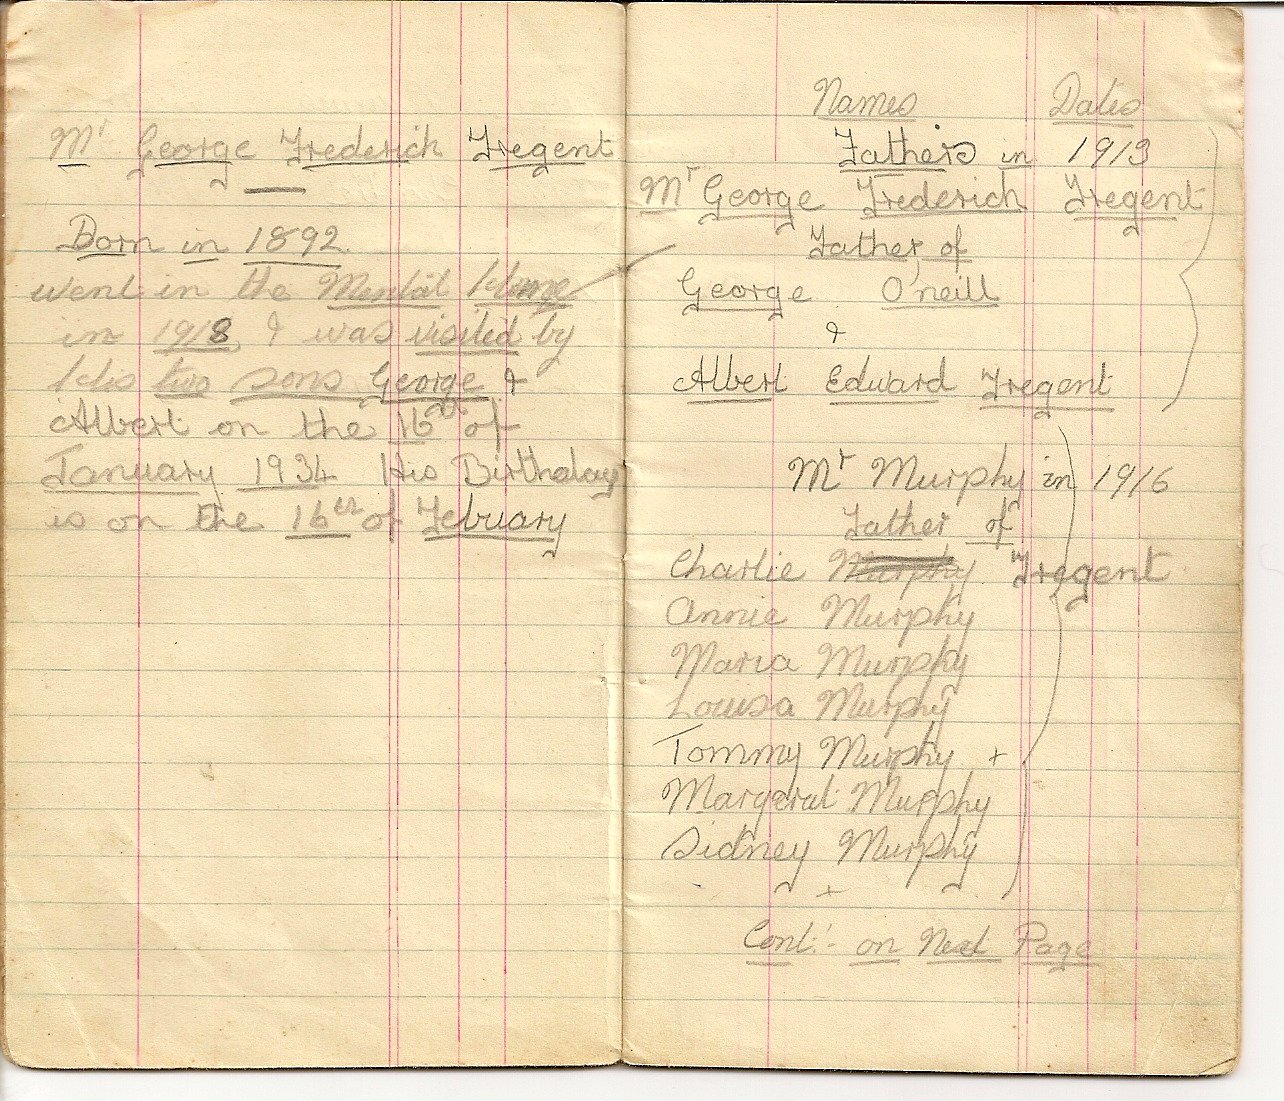 Mr George Frederich Tregent
Born in 1892.
went in the Mental Home
in 1918, & was visited by
His two sons George &
Albert on the 16th of
January 1934 His Birthday
is on the 16th of Febuary
Names Dates
Fathers in 1913
Mr George Frederich Tregent
Father of
George O'neill
&
Albert Edward Tregent
Mr Murphy in 1916
Father of
Charlie Murphy Tregent
Annie Murphy
Maria Murphy
Louisa Murphy
Tommy Murphy +
Margerat Murphy
Sidney Murphy
+
Cont:- on Next Page